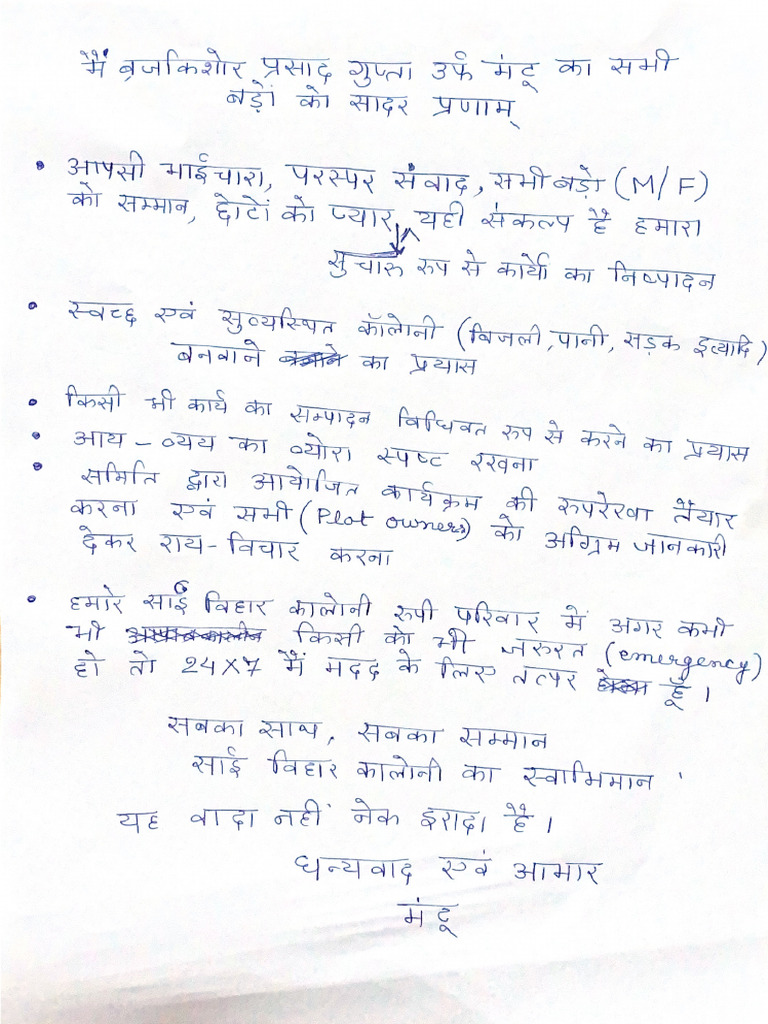 मैं ब्रजकिशोर प्रसाद गुप्ता उर्फ मंटू का सभी
बड़ों को सादर प्रणाम्
• आपसी भाईचारा, परस्पर संवाद, सभी बड़ो (M/F)
को सम्मान, छोटों को प्यार, यही संकल्प है हमारा
सुचारू रुप से कार्यो का निष्पादन
• स्वच्छ एवं सुव्यस्थित कॉलोनी (बिजली, पानी, सड़क इत्यादि)
बनवाने का प्रयास
• किसी भी कार्य का सम्पादन विधिवत रुप से करने का प्रयास
• आय - व्यय का व्योरा स्पष्ट रखना
• समिति द्वारा आयोजित कार्यक्रम की रुपरेखा तैयार
करना एवं सभी (Plot owners) को अग्रिम जानकारी
देकर राय-विचार करना
• हमारे साईं विहार कालोनी रुपी परिवार में अगर कभी
भी किसी को भी जरुरत (emergency)
हो तो 24X7 मैं मदद के लिए तत्पर हूँ।
सबका साथ, सबका सम्मान
साईं विहार कालोनी का स्वाभिमान
यह वादा नहीं नेक इरादा है।
धन्यवाद एवं आभार
मंटू